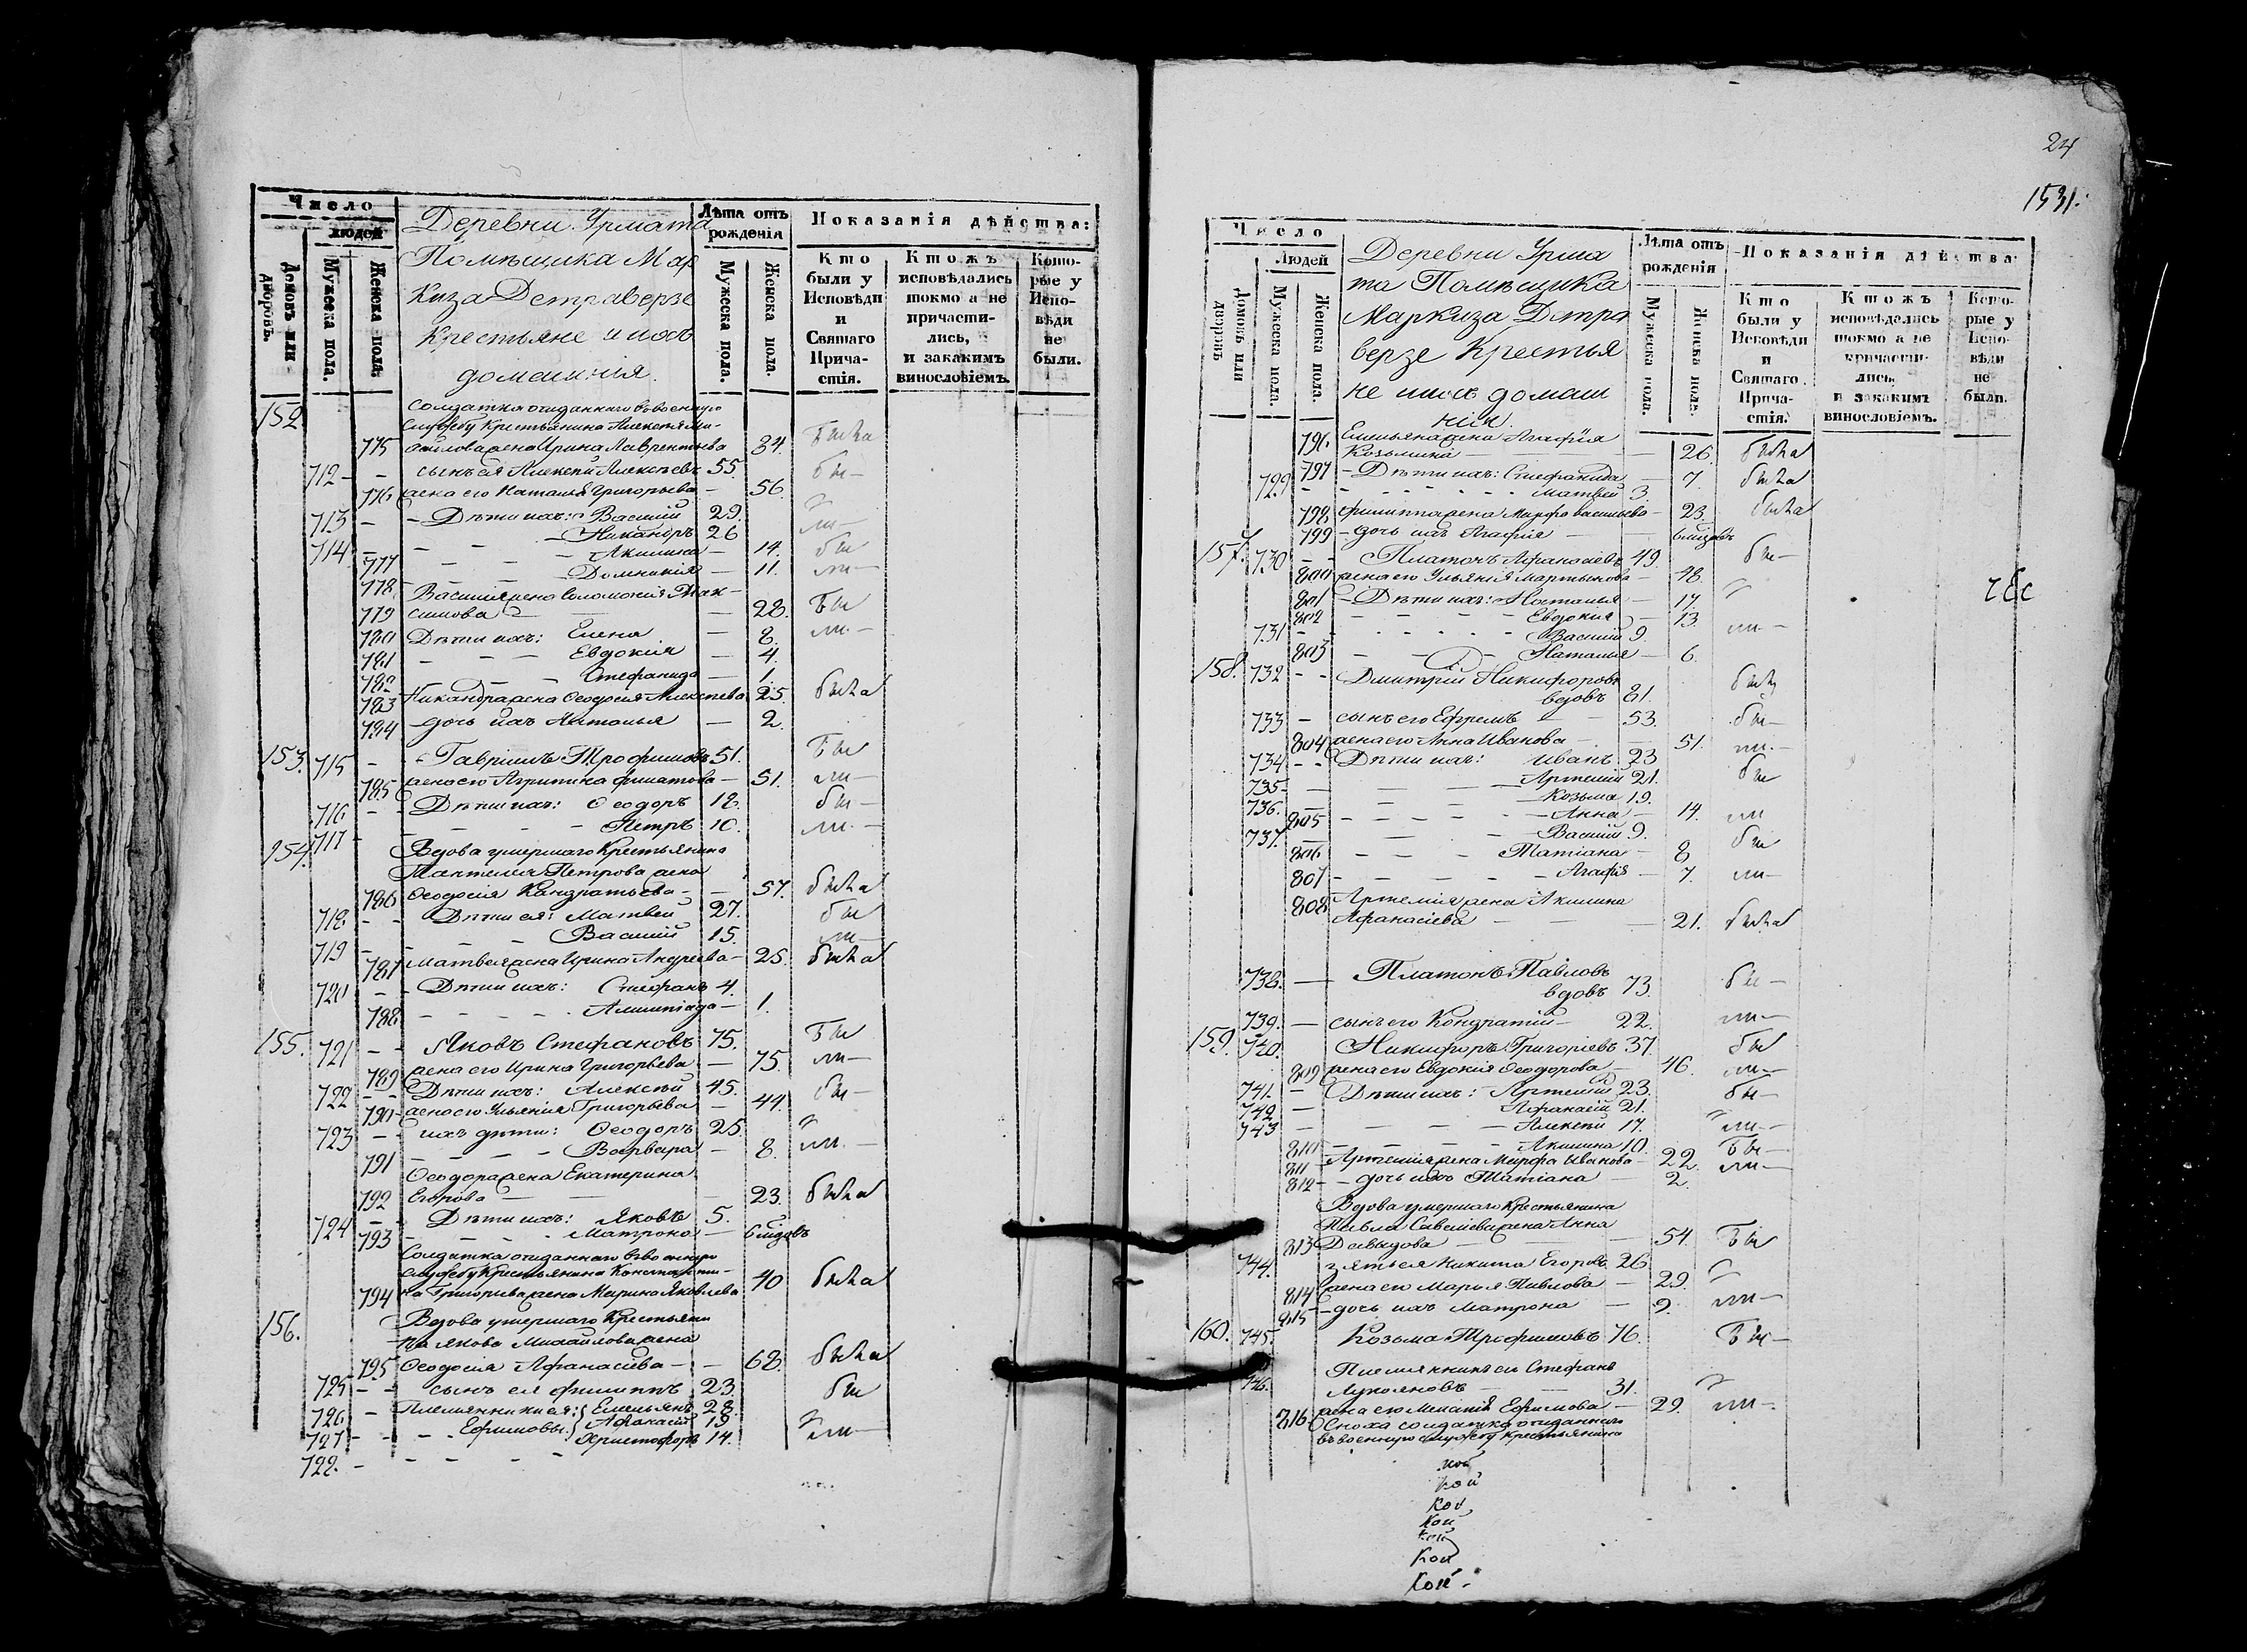 Число
людей
Домовъ или дворовъ.
Мужеска пола.
Женска пола.
Деревни Урмата
Помѣщика Мар
киза Детраверзе
Крестьяне и ихъ
домашнія.
Лѣта отъ рожденія
Мужеска пола.
Женска пола.
Показанія дѣйства:
Кто были у Исповѣди и Святаго Прича-стія.
Ктожъ исповѣдались токмо а не причасти-лись, и закакимъ винословіемъ.
Кото-рые у Испо-вѣди не были.
152
Солдатка отданнаго въ военную
службу Крестьянина Алексея Ми-
775 хайлова жена Ирина Лаврентьева 84. Была
712 - - сынъ ея Алексей Алексеевъ 55. бы-
776 жена его Наталья Григорьева - 56.
713 - - Дѣти ихъ: Василій 29. ли-
714 - - Никаноръ 26
777 - - Акилина - 14. бы
778 - - Домникія - 11. ли-
Василія жена Соломонія Мак-
779 симова - 28. Бы
780 Дѣти ихъ: Елена - 8. ли-
781 - - Евдокия - 4.
782 - - Стефанида - 1.
783 Никандра жена Ѳеодосия Алексеева 25. была
784 дочь ихъ Наталья - 2.
153. 715 - Гавриилъ Трофимовъ 51. Бы
785 жена его Агрипина Филатова - 51. ли-
716 - - Дѣти ихъ: Ѳеодоръ 18. бы-
717 - - Петръ 10. ли-
154. Вдова умершаго Крестьянина
Пантелея Петрова жена
786 Ѳеодосия Кандратьева - 57. была
718 - - Дѣти ея: Матвей 27. бы
719 - - Василий 15. ли-
787 Матвея жена Ирина Андреева - 25. была
720 - - Дѣти ихъ: Стефанъ 4.
788 - - 1.
155. 721 - - Яковъ Стефановъ 75. Бы
789 жена его Ирина Григорьева - 75. ли-
722 - - Дѣти ихъ: Алексѣй 45. бы-
790 жена его Ульяния Григорьева - 44.
723 - - ихъ дѣти: Ѳеодоръ 25.
791 - - Варвара - 8. ли-
Ѳеодора жена Екатерина
792 Егорова - 23. была
724 - - Дѣти ихъ: Яковъ 5.
793 - - Матрона - 6
Солдатка отданнаго въ военную
службу Крестьянина Константи-
794 на Григорьева жена Марина Яковлева 40 была
156. Вдова умершаго Крестьяни
на Якова Михайлова жена
795 Ѳеодосия Афанасіева - 68. была
725 - - сынъ ея Филиппъ 23. бы
726 - Племянники ея: Емельянъ 28.
727 - - Ефимовы: Афанасий 19 ли-
728. - - Христофоръ 14.
24
1531.
Число
Людей
Домовъ или дворовъ
Мужеска пола.
Женска пола.
Деревни Урма
та Помѣщика
Маркиза Детра
верзе Крестья
не ихъ домаш
ніи.
Лѣта отъ рожденія
Мужеска пола.
Женска пола.
Показанія дѣйства
Кто были у Исповѣди и Святаго Прича-стія.
Ктожъ исповѣдались токмо а не причасти-лись, и закакимъ винословіемъ.
Кото-рые у Испо-вѣди не были.
796. Емельяна жена Агафия
Козьмина - 26. была
797 - Дѣти ихъ: Стефанида - 7. была
729 - - Матвей 3.
798 Филиппа жена Марфа Васильева - 23. была
799 - дочь ихъ Агафия - 6
157. 730 - - Платонъ Афанасіевъ 49. бы-
800 жена его Ульянія Мартынова - 48.
801 - Дѣти ихъ: Наталья - 17.
802 - - Евдокия - 13. ли-
731 - - Василій 9.
803 - - Наталья - 6.
158. 732 - - Дмитрій Никифоровъ
вдовъ 81. бы
733 - сынъ его Ефремъ - 53. бы-
804 жена его Анна Иванова - 51. ли-
734 - - Дѣти ихъ: Иванъ 23
735 - - Артемій 21. бы
736. - - Козьма 19.
805 - - Анна - 14. ли
737. - - Василій 9.
806 - - Татіана - 8 бы
807 - - Агафія - 7. ли-
808 Артемія жена Акилина
Афанасіева - 21. была
738. - Платонъ Павловъ
вдовъ 73. бы-
739. - сынъ его Кондратій - 22. ли-
159. 740. Никифоръ Григоріевъ 37. бы
809 жена его Евдокия Ѳеодорова - 46. ли-
741. - Дѣти ихъ: Артемій 23. бы-
742 - Афанасій 21.
743 - - Алексѣй 17. ли-
810 - - Акилина 10. Бы-
811 - Артемія жена Марфа Иванова - 22. ли-
812 - - дочь ихъ Татіана - 2.
Вдова умершаго Крестьянина
Павла Савельева жена Анна
813 Давыдова - 54. Бы
744. зять ея Никита Егоровъ 26
814 жена его Марья Павлова - 29.
815 - дочь ихъ Матрона - 9. ли-
160. 745. Козьма Трофимовъ 76. Бы-
746. Племянникъ его Стефанъ
Лукояновъ - 31.
816 жена его Ефимова - 29. ли-
Сноха солдатка отданнаго
въ военную службу Крестьянина
кой
кой
кой
кой
кой
кой